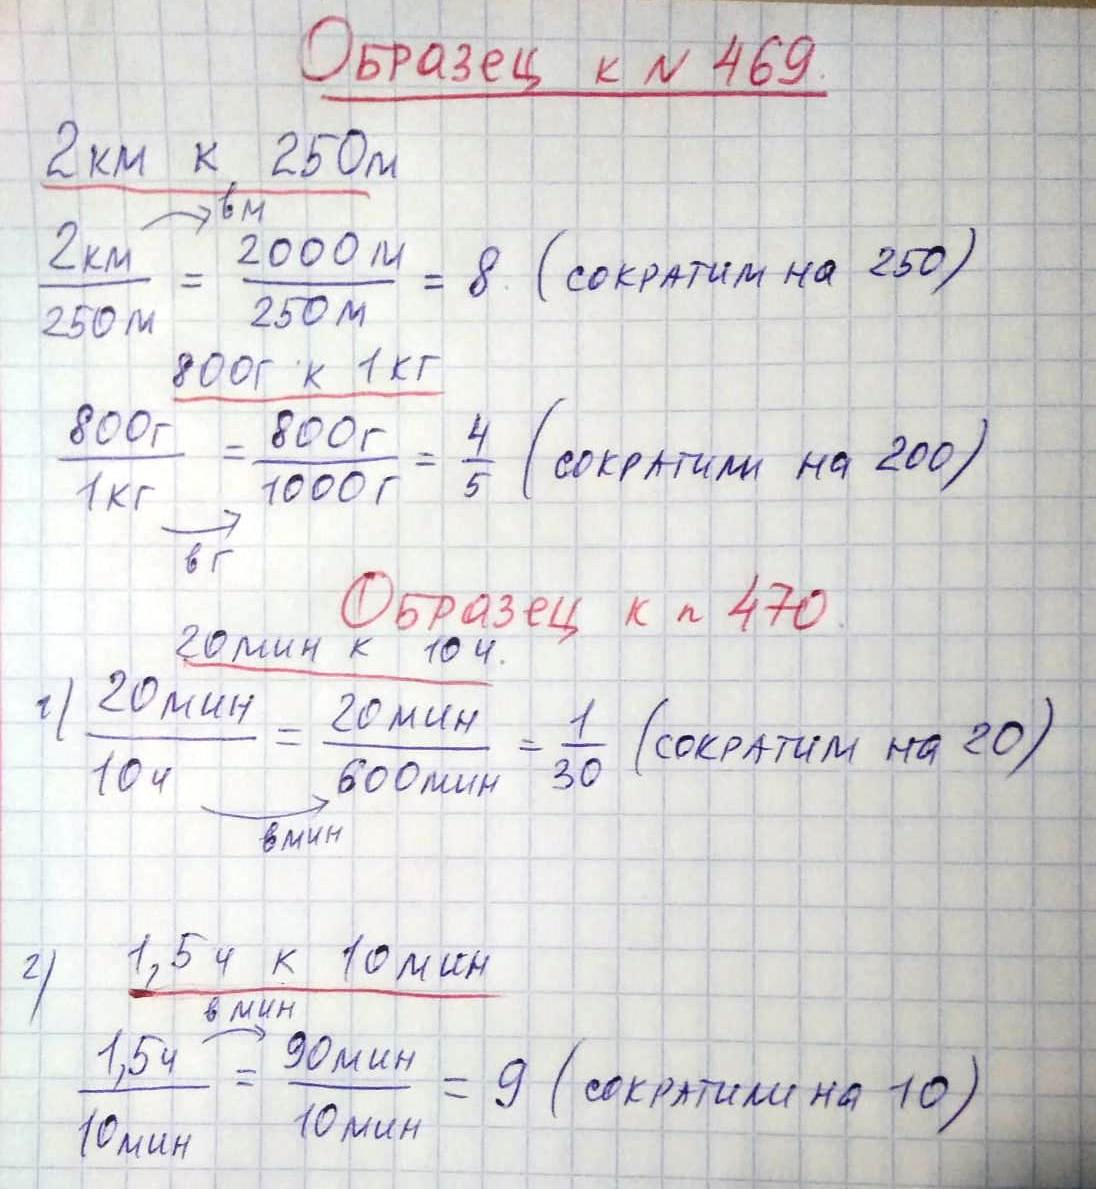 Образец к N 469.
2км к 250м
в м
2км/250м = 2000м/250м = 8. (сократим на 250)
800г к 1кг
800г/1кг = 800г/1000г = 4/5 (сократили на 200)
в г
Образец к n 470.
20мин к 10ч.
г) 20мин/10ч = 20мин/600мин = 1/30 (сократим на 20)
в мин
г) 1,5ч к 10мин
в мин
1,5ч/10мин = 90мин/10мин = 9 (сократили на 10)